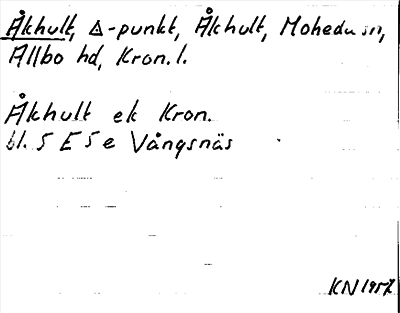 Åkhult, ∆-punkt, Åkhult, Moheda sn,
Allbo hd, Kron. l.
Åkhult ek Kron.
bl. 5 E 5 e Vångsnäs
KN 1957